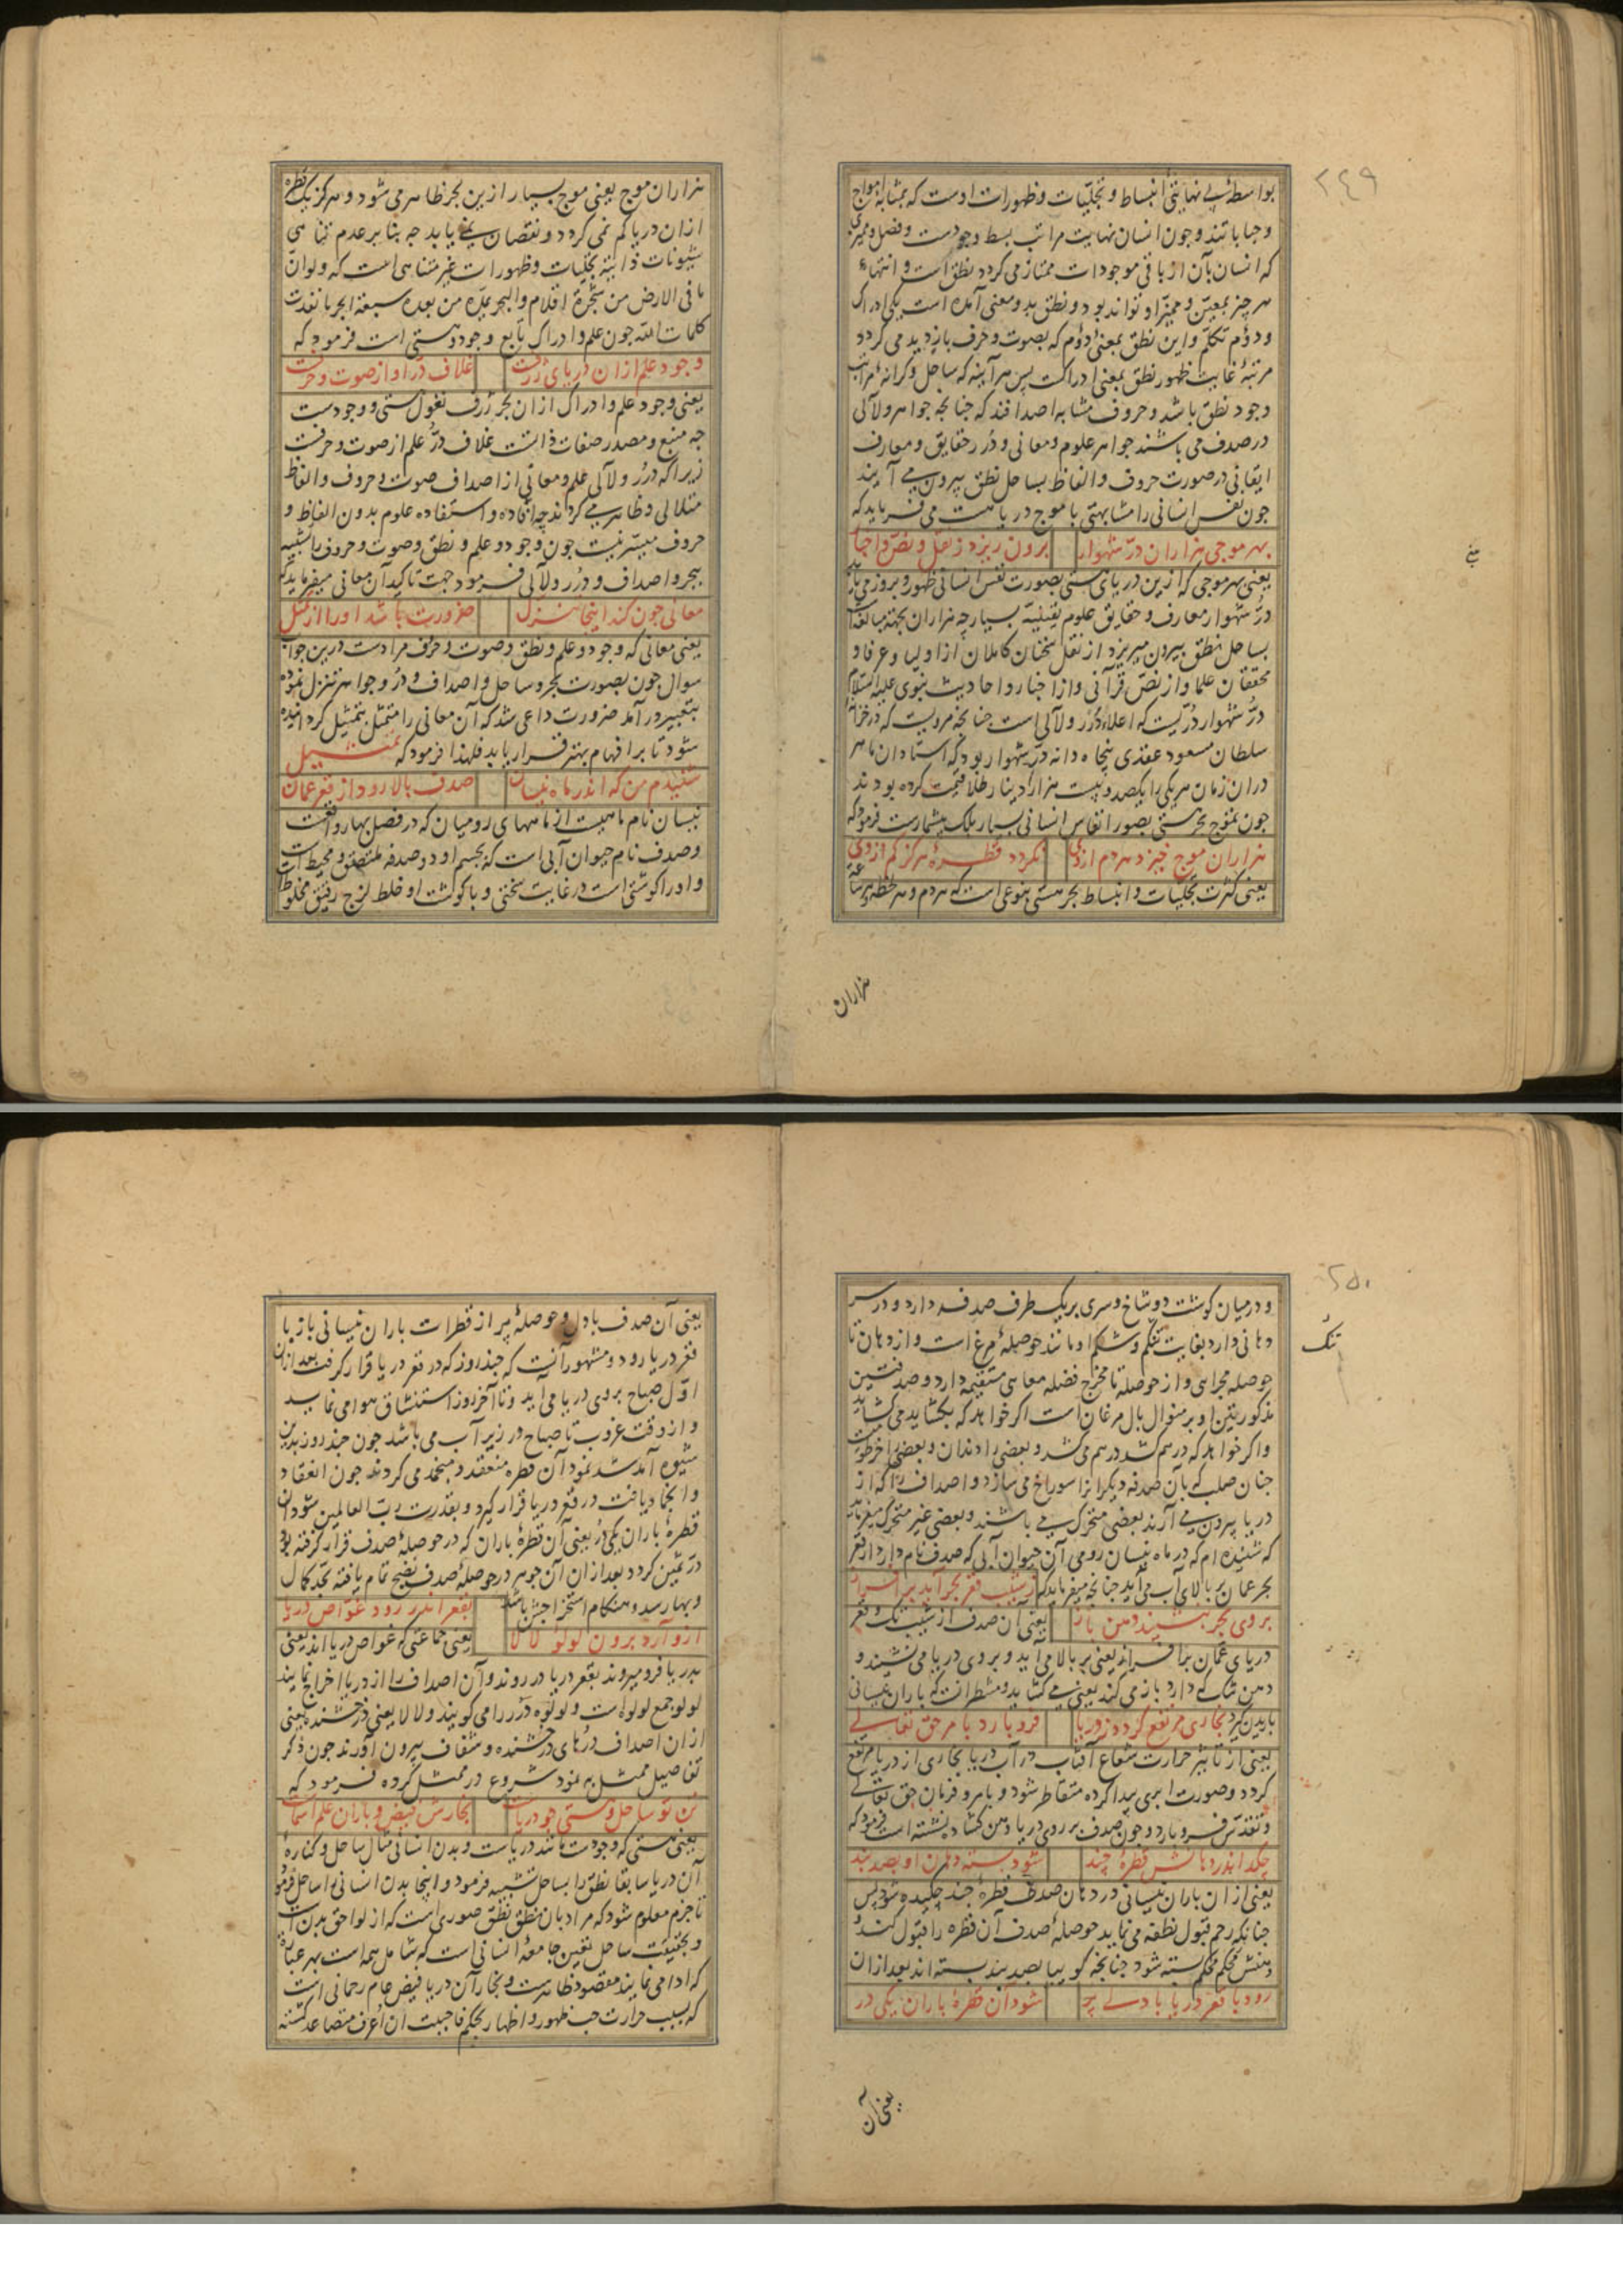 ۲۴۹
بواسطهٔ بی نهایتی انبساط و تجلیّات و ظهورات اوست که بمثابهٔ امواج
و حبابا تند و چون انسان نهایت مراتب بسط وجودست و فصل و ممیزی
که انسان بآن از باقی موجودات ممتاز می کردد نطق است و انتهاء
هر چیز بمعیّن و ممیّز او تواند بود و نطق بدو معنی آمده است یکی ادراک
و دوّم تکلّم و این نطق بمعنی دوّم که بصوت و حرف باز دید می کردد
مرتبهٔ غایت ظهور نطق بمعنی ادراکست پس هر آینه که ساحل و کرانهٔ مراتب
وجود نطق باشد و حروف مشابه اصداف اند که چنانچه جواهر و لآلی
در صدف می باشند جواهر علوم و معانی و درر حقایق و معارف
ایقانی در صورت حروف و الفاظ بساحل نطق بیرون می آیند
چون نفس انسانی را مشابهتی با موج دریا هست می فرماید که
بهر موجی هزاران درّ شهوار برون ریزد ز نقل و نصّ و اخبار
یعنی بهر موجی که ازین دریای هستی بصورت نفس انسانی ظهور و بروز می یابد
درّ شهوار معارف و حقایق علوم یقینیّه بسیار چه هزاران بجهة مبالغه است
بساحل نطق بیرون میریزد از نقل سخنان کاملان از اولیا و عرفا و
محققان علما و از نصّ قرآنی و از اخبار و احادیث نبوی علیه السّلام
درّ شهوار درّیست که اعلاء درر و لآلی است چنانچه مرویست که در خزانهٔ
سلطان مسعود عقدی پنجاه دانه درّ شهوار بود که استادان ماهر
دران زمان هر یکی را یکصد و بیست هزار دینار طلا قیمت کرده بودند
چون تموّج بحر هستی بصور انفاس انسانی بسیار بلک بیشمارست فرمود که
هزاران موج خیزد هر دم از وی نکردد قطرهٔ هرگز کم از وی
یعنی کثرت تجلیات و انبساط بحر هستی بنوعی است که هر دم و هر لحظه و هر ساعة
هزاران
هزاران موج یعنی موج بسیار ازین بحر ظاهر می شود و هرگز یک قطره
ازان دریا کم نمی کردد و نقصان نمی یابد چه بنا بر عدم تناهی
شیونات ذاتیّه تجلّیات و ظهورات غیر متناهی است که ولو انّ
ما فی الارض من شجرة اقلام والبحر یمدّه من بعده سبعة ابحر ما نفدت
کلمات الله چون علم و ادراک تابع وجود و هستی است فرمود که
وجود علم ازان دریای ژرفست غلاف درّ او از صوت و حرفست
یعنی وجود علم و ادراک ازان بحر ژرف نغول هستی و وجودست
چه منبع و مصدر صفات ذاتست غلاف درّ علم از صوت و حرفست
زیرا که درر و لآلی علم و معانی از اصداف صوت و حروف و الفاظ
متلالی و ظاهر می کردند چه افاده و استفاده علوم بدون الفاظ و
حروف میسّر نیست چون وجود و علم و نطق و صوت و حروف را تشبیه
ببحر و اصداف و درر و لآلی فرمود جهت تاکید آن معانی میفرماید که
معانی چون کند اینجا تنزل ضرورت باشد او را از تمثل
یعنی معانی که وجود و علم و نطق و صوت و حرف مرادست درین جواب
سوال چون بصورت بحر و ساحل و اصداف و درّ و جواهر تنزل نموده
بتعبیر در آمد ضرورت داعی شد که آن معانی را متمثل بتمثیل کردانیده
شود تا بر افهام بهتر قرار یابد فلهذا فرمود که تمثیل
شنیدم من که اندر ماه نیسان صدف بالا رود از قعر عمان
نیسان نام ماهیست از ماههای رومیان که در فصل بهار واقعست
و صدف نام حیوان آبی است که بجسم او دو صدفه ملتصق و محیط است
و او را کوشتی است در غایت سختی و با کوشت او خلط لزج رقیق مخلوط
۲۵۰
تنگ
و در میان کوشت دو شاخ و سری بریک طرف صدفه دارد و در سر
دهانی دارد بغایت تنگ و شکم او مانند حوصلهٔ مرغ است و از دهان تا
حوصله مجرایی و از حوصله تا مخرج فضله معایی مستقیمه دارد و صدفتین
مذکورتین او بر منوال بال مرغان است اکر خواهد که بکشاید می کشاید
و اکر خواهد که درهم کشد درهم می کشد و بعضی را دندان و بعضی را خرطومیست
چنان صلب که بآن صدفه دیگر انرا سوراخ می سازد و اصداف را که از
دریا بیرون می آرند بعضی متحرک می باشند و بعضی غیر متحرک میفرماید
که شنیده ام که در ماه نیسان رومی آن حیوان آبی که صدف نام دارد از قعر
بحر عمان بر بالای آب می آید چنانچه میفرماید که ز شیب قعر بحر آید بر افراز
بروی بحر بنشیند دهن باز یعنی آن صدف از شیب تک و قعر
دریای عمّان بر افراز یعنی بر بالا می آید و بروی دریا می نشیند و
دهن تنگ که دارد باز می کند یعنی می کشاید و منتظر انست که باران نیسانی
باریدن کیرد بخاری مرتفع کردد ز دریا فرو بارد بامر حق تعالی
یعنی از تاثیر حرارت شعاع آفتاب در آب دریا بخاری از دریا مرتفع
کردد و صورت ابری پیدا کرده متقاطر شود و بامر و فرمان حق تعالی
و تقدس فرو بارد و چون صدف بر روی دریا دهن کشاده نشسته است فرمود که
چکد اندر دهانش قطرهٔ چند شود بسته دهان او بصد بند
یعنی ازان باران نیسانی در دهان صدف قطرهٔ چند چکیده شود پس
چنانکه رحم قبول نطفه می نماید حوصلهٔ صدف آن قطره را قبول کند و
دهنش محکم محکم بسته شود چنانچه کوییا بصد بند بسته اند بعد ازان
رود با قعر دریا با دلی پر شود آن قطرهٔ باران یکی در
یعنی آن
یعنی آن صدف با دل و حوصلهٔ پر از قطرات باران نیسانی باز با
قعر دریا رود و مشهور آنست که چند روز که در قعر دریا قرار کرفت بعد ازان
اوّل صباح بروی دریا می آید و تا آخر روز استنشاق هوا می نماید
و از وقت غروب تا صباح در زیر آب می باشد چون چند روز بدین
شیوه آمد شد نمود آن قطره منعقد و منجمد می کردد چون انعقاد
و انجماد یافت در قعر دریا قرار کیرد و بقدرت ربّ العالمین شود آن
قطرهٔ باران یکی درّ یعنی آن قطرهٔ باران که در حوصلهٔ صدف قرار کرفته بود
درّ ثمین کردد بعد ازان آن جوهر در حوصلهٔ صدف نضج تمام یافته بحد کمال
و بها رسد و هنکام استخراجش باشد بقعر اندر رود غوّاص دریا
ازو آرد برون لولو لالا یعنی جماعتی که غواص دریا اند یعنی
بدریا فرو میروند بقعر دریا در روند و آن اصداف را از دریا اخراج نمایند
لولو جمع لولوه است و لولوه درّ را می کویند و لالا یعنی درخشنده یعنی
ازان اصداف درّهای درخشنده و شفاف بیرون آورند چون ذکر
تفاصیل ممثل به نمود شروع در ممثل کرده فرمود که
تن تو ساحل و هستی چو دریاست بخارش فیض و باران علم اسماست
یعنی هستی که وجودست مانند دریاست و بدن انسانی مثال ساحل و کنارهٔ
آن دریا سابقا نطق را بساحل تشبیه فرمود و اینجا بدن انسانی را ساحل فرمود
تا جزم معلوم شود که مراد بان نطق نطق صوری است که از لواحق بدن است
و بحقیقت ساحل تعین جامعهٔ انسانی است که شامل همه است بهر عبارة
که ادا می نمایند مقصود ظاهرست و بخار آن دریا فیض عام رحمانی است
که بسبب حرارت حب ظهور و اظهار بحکم فاحببت ان اعرف متصاعد کشته